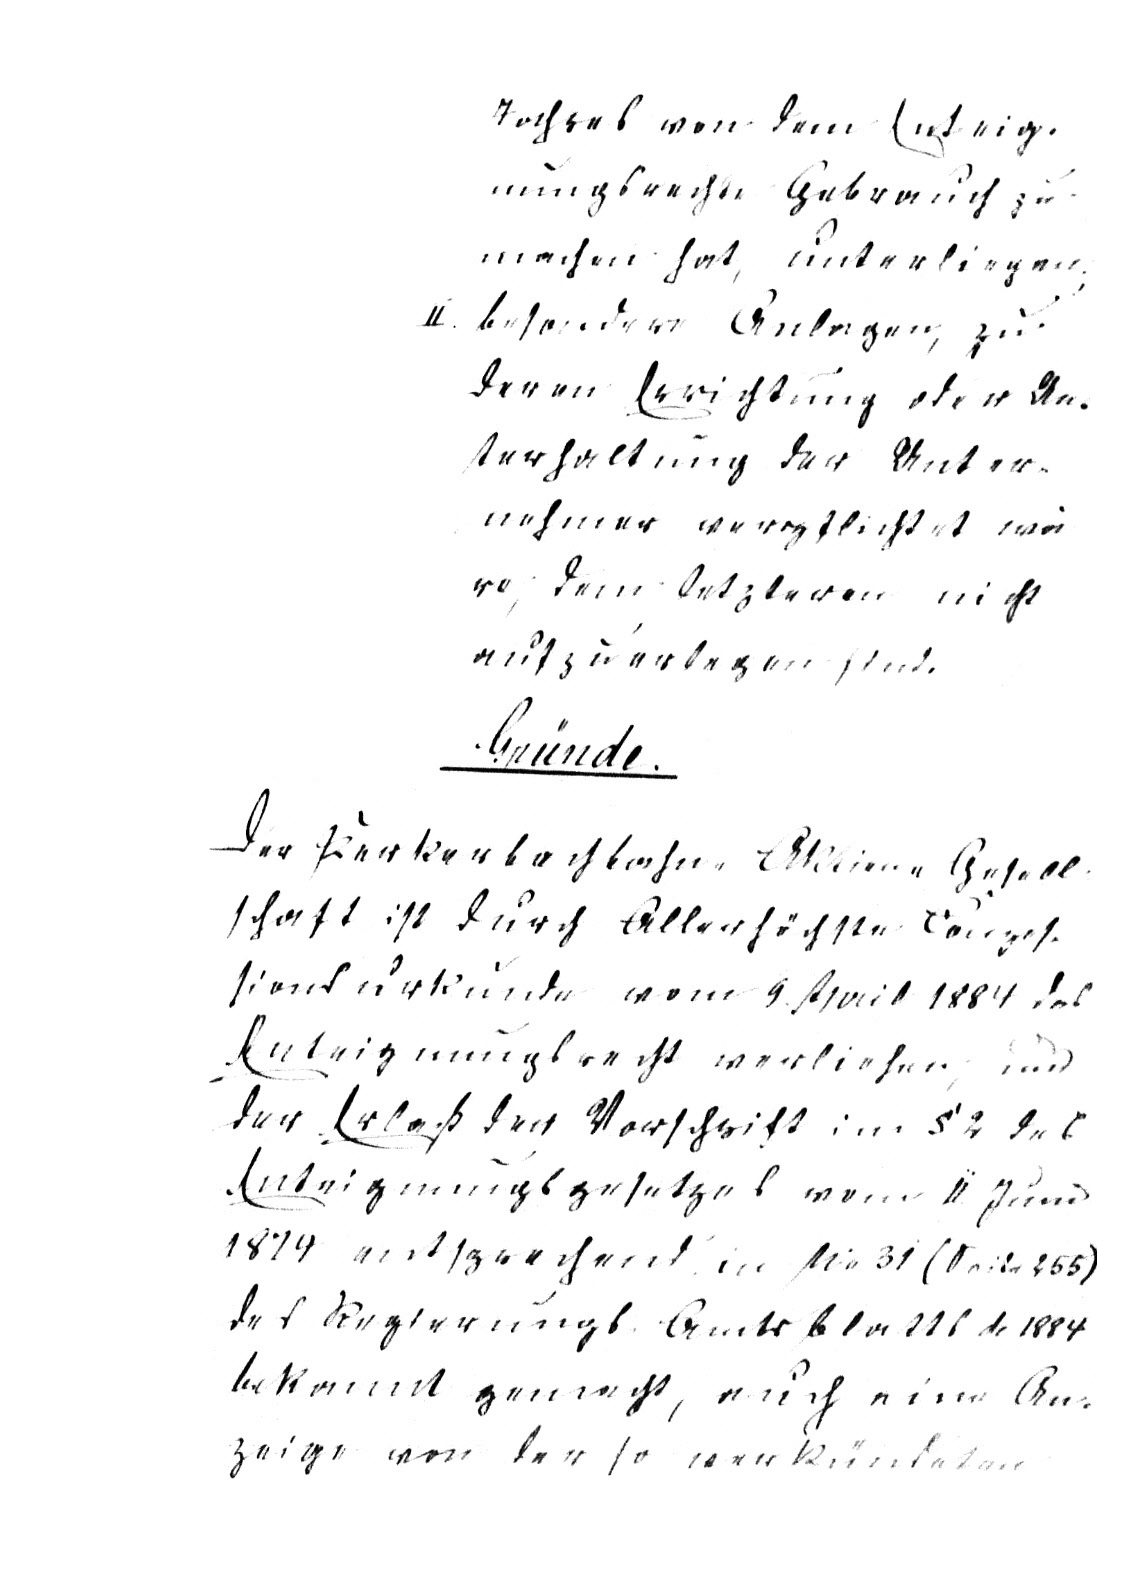 Jahres von dem Enteig-
nungsrechte Gebrauch zu
machen hat, unterliegen;
II. besondere Anlagen, zu
deren Errichtung oder Un-
terhaltung der Unter-
nehmer verpflichtet wä
re, dem letzteren nicht
aufzuerlegen sind.
Gründe.
Der Kerkerbachbahn-Aktien-Gesell-
schaft ist durch Allerhöchste Conzes-
sionsurkunde vom 9. April 1884 das
Enteignungsrecht verliehen, und
der Erlaß der Vorschrift im § 2 des
Enteignungsgesetzes vom 11 Juni
1874 entsprechend in No 31 (Seite 255)
des Regierungs-Amtsblatts de 1884
bekannt gemacht, auch eine An-
zeige von der so verkündeten